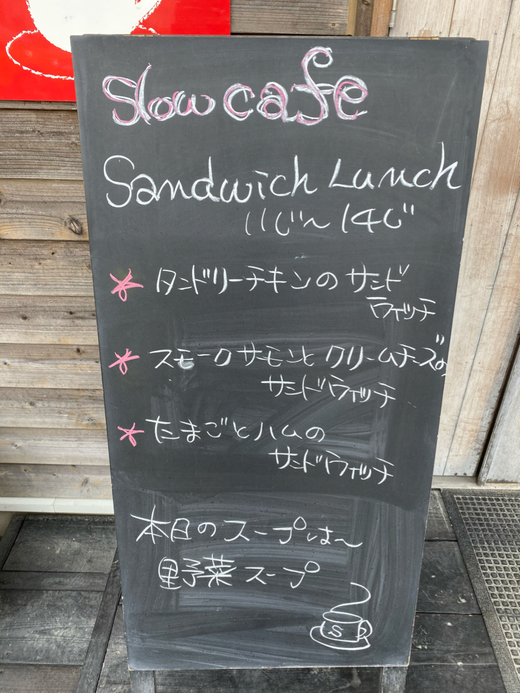 Slow cafe
Sandwich Lunch
11:00〜14:00
* タンドリーチキンの サンド
ウィッチ
* スモークサーモンと クリームチーズの
サンドウィッチ
* たまごとハムの
サンドウィッチ
本日のスープは〜
野菜スープ
S